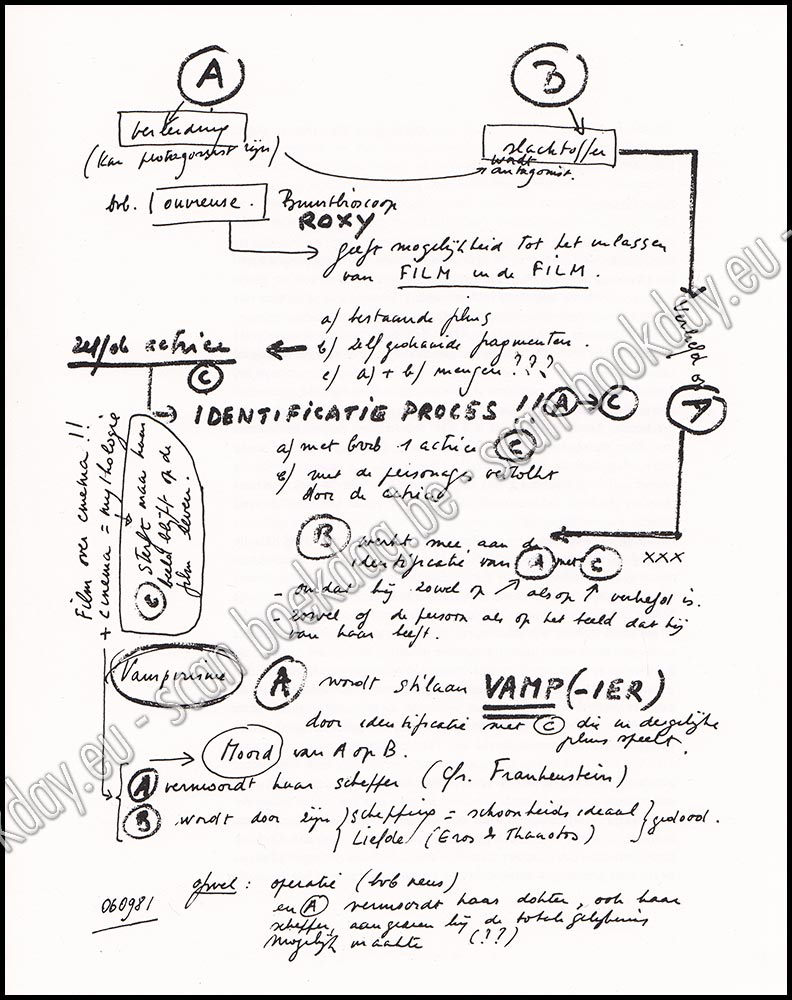 A
B
Verleiding
slachtoffer
(kan protagonist zijn)
wordt
antagonist.
bvb. 1 ouvreuse. Buurtbioscoop
ROXY
geeft mogelijkheid tot het inlassen
van FILM in de FILM.
Verliefd op
A
a/ bestaande films
zelfde actrice
b/ zelfgedraaide fragmenten.
C
c/ a/ + b/ mengen ???
IDENTIFICATIE PROCES !! A → C
a/ met bvb 1 actrice C
b/ met de personages vertolkt
door de actrice
Film over cinema !!
+ cinema = mythologie
C sterft maar haar
beeld blijft op de
film leven.
B werkt mee, aan de
identificatie van A met C xxx
- omdat hij zowel op ↗ als op ↑ verliefd is.
- zowel of de persoon als op het beeld dat hij
van haar heeft.
Vampirisme
A wordt stilaan VAMP(-IER)
door identificatie met C die in dergelijke
films speelt.
→ Moord van A op B.
A vermoordt haar schepper (cfr. Frankenstein)
B wordt door zijn schepping = schoonheidsideaal
Liefde (Eros & Thanatos) gedood.
ofwel : operatie (bvb neus)
060981
en A vermoordt haar dokter, ook haar
schepper, aangezien hij de totale gelijkenis
mogelijk maakte (??)
kday.eu - scan boekdag.be - scan bookday.eu -